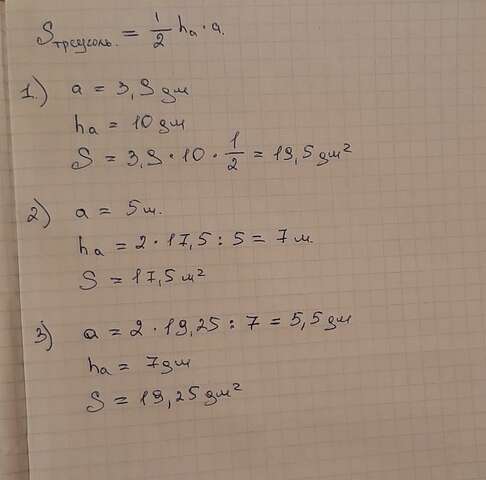 Sтреуголь. = 1/2 hₐ · a.
1.) a = 3,9 дм
hₐ = 10 дм
S = 3,9 · 10 · 1/2 = 19,5 дм²
2) a = 5 м.
hₐ = 2 · 17,5 : 5 = 7 м.
S = 17,5 м²
3) a = 2 · 19,25 : 7 = 5,5 дм
hₐ = 7 дм
S = 19,25 дм²